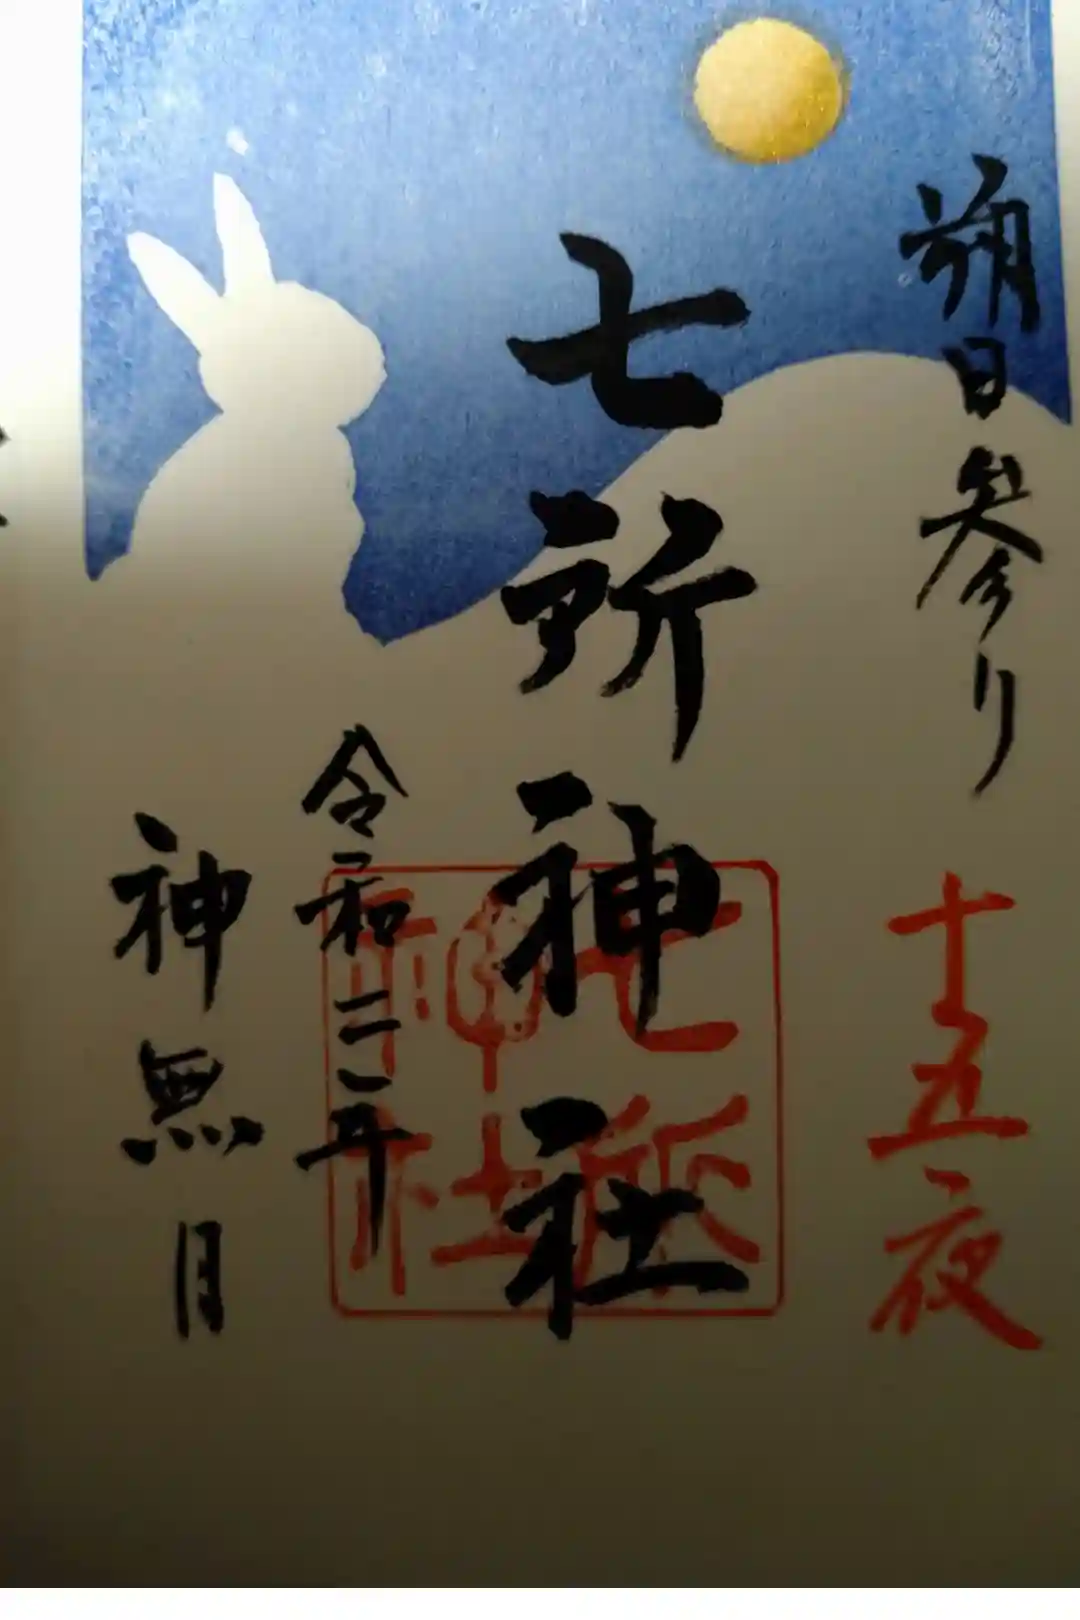 朔日参り
十五夜
七所神社
七所神社
令和二年
神無月